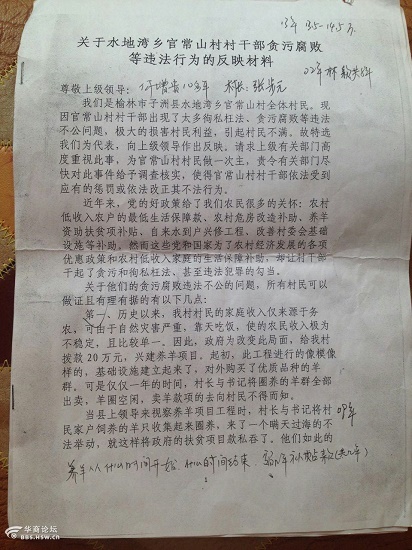 关于水地湾乡官常山村村干部贪污腐败
等违法行为的反映材料
尊敬上级领导：
我们是榆林市子洲县水地湾乡官常山村全体村民。现
因官常山村村干部出现了太多徇私枉法、贪污腐败等违法
不公问题，极大的损害村民利益，引起村民不满。故特选
我们为代表，向上级领导作出反映。请求上级有关部门高
度重视此事，为官常山村村民做一次主，责令有关部门尽
快对此事件给予调查核实，使得官常山村村干部依法受到
应有的惩罚或依法改正其不法行为。
近年来，党的好政策给了我们农民很多的关怀：农村
低收入农户的最低生活保障款、农村危房改造补助、养羊
资助扶贫项补贴、自来水到户兴修工程、改善村委会基础
设施等补助。然而这些党和国家为了农村经济发展的各项
优惠政策和农村低收入家庭的生活保障补助，却让村干部
干起了贪污和徇私枉法、甚至违法犯罪的勾当。
关于他们的贪污腐败违法不公的问题，所有村民可以
做证且有理有据的有以下几点：
第一、历史以来，我村村民的家庭收入仅来源于务
农，可由于自然灾害严重，靠天吃饭，使的农民收入极为
不稳定，且比较单一。因此，政府为改变此局面，给我村
拨款20万元，兴建养羊项目。起初，此工程进行的像模像
样的，基础设施建立起来了，对外购买了优质品种的羊
群。可是仅仅一年的时间，村长与书记将圈养的羊群全部
出卖，羊圈空闲，卖羊款项的去向村民不得而知。
当县上领导来视察养羊项目工程时，村长与书记将村
民家户饲养的羊只收集起来圈养，来了一个瞒天过海的不
法举动，就这样将政府的扶贫项目款私吞了。他们如此的
09年
养羊从什么时间开始 什么时间结束
1
华商论坛
BBS.HSW.CN